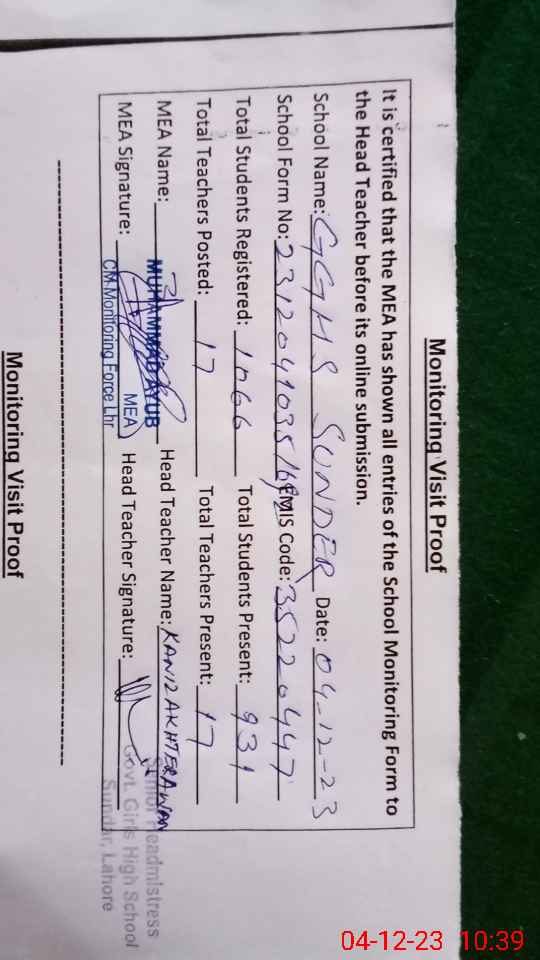 Monitoring Visit Proof
It is certified that the MEA has shown all entries of the School Monitoring Form to
the Head Teacher before its online submission.
School Name: GGHS SUNDER Date: 04-12-23
School Form No: 231204103516 EMIS Code: 35220447
Total Students Registered: 1066 Total Students Present: 931
Total Teachers Posted: 17 Total Teachers Present: 17
MEA Name: MUHAMMAD AYUB Head Teacher Name: KANIZ AKHTER AWAN
MEA Signature: MEA Head Teacher Signature:
CM Monitoring Force Lhr
Senior Headmistress
Govt. Girls High School
Sundar, Lahore
Monitoring Visit Proof
04-12-23 10:39